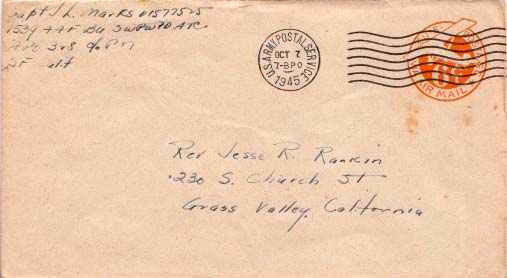 Capt J L Marks 01577525
1539 AAF BU
APO 328 c/o P.M.
SF Calif
U.S. ARMY POSTAL SERVICE
OCT 7
7-BPO
1945
6¢
AIR MAIL
Rev Jesse R. Rankin
230 S. Church St
Grass Valley, California